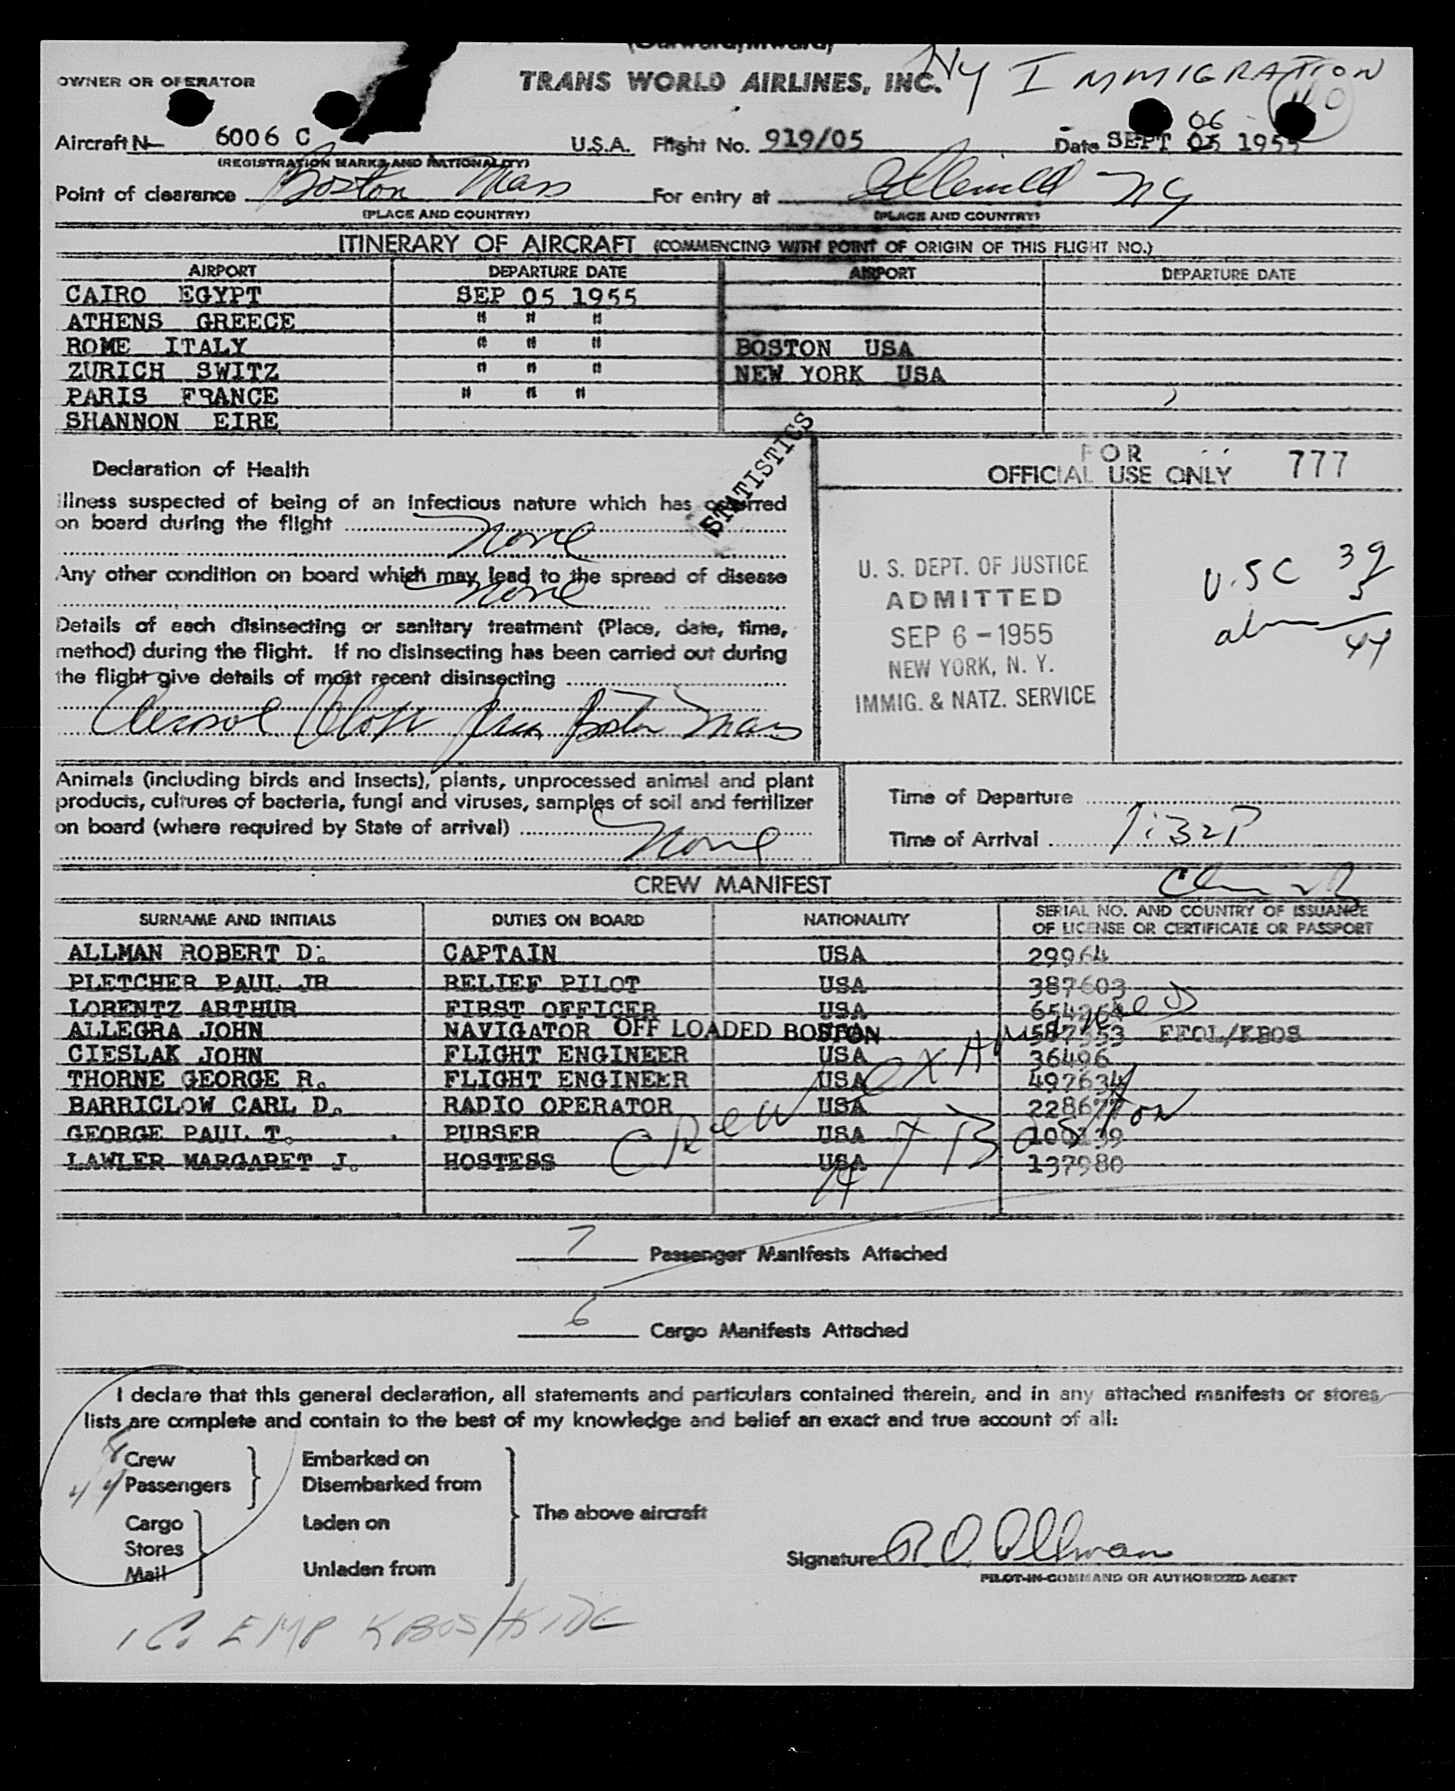 (Outward/Inward)
OWNER OR OPERATOR TRANS WORLD AIRLINES, INC. NY IMMIGRATION
Aircraft N 6006 C U.S.A. Flight No. 919/05 Date SEPT 06 05 1955
(REGISTRATION MARKS AND NATIONALITY)
Point of clearance Boston Mass For entry at Idlewild NY
(PLACE AND COUNTRY) (PLACE AND COUNTRY)
ITINERARY OF AIRCRAFT (COMMENCING WITH POINT OF ORIGIN OF THIS FLIGHT NO.)
AIRPORT DEPARTURE DATE AIRPORT DEPARTURE DATE
CAIRO EGYPT SEP 05 1955
ATHENS GREECE " " "
ROME ITALY " " " BOSTON USA
ZURICH SWITZ " " " NEW YORK USA
PARIS FRANCE " " "
SHANNON EIRE
STATISTICS
Declaration of Health
Illness suspected of being of an infectious nature which has occurred
on board during the flight
None
Any other condition on board which may lead to the spread of disease
None
Details of each disinsecting or sanitary treatment (Place, date, time,
method) during the flight. If no disinsecting has been carried out during
the flight give details of most recent disinsecting
Aerosol Boston Mass
FOR
OFFICIAL USE ONLY 777
U. S. DEPT. OF JUSTICE
ADMITTED
SEP 6 - 1955
NEW YORK, N. Y.
IMMIG. & NATZ. SERVICE
U.S C 39
5
44
Animals (including birds and insects), plants, unprocessed animal and plant
products, cultures of bacteria, fungi and viruses, samples of soil and fertilizer
on board (where required by State of arrival)
None
Time of Departure
Time of Arrival 1:32P
CREW MANIFEST
SURNAME AND INITIALS DUTIES ON BOARD NATIONALITY SERIAL NO. AND COUNTRY OF ISSUANCE
OF LICENSE OR CERTIFICATE OR PASSPORT
ALLMAN ROBERT D. CAPTAIN USA 29964
PLETCHER PAUL JR RELIEF PILOT USA 387603
LORENTZ ARTHUR FIRST OFFICER USA 654264
ALLEGRA JOHN NAVIGATOR OFF LOADED BOSTON 587353 FFOL/KBOS
CIESLAK JOHN FLIGHT ENGINEER USA 36496
THORNE GEORGE R. FLIGHT ENGINEER USA 497634
BARRICLOW CARL D. RADIO OPERATOR USA 228677
GEORGE PAUL T. PURSER USA 100239
LAWLER MARGARET J. HOSTESS USA 137980
CREW EXAMINED
AT Boston
7 Passenger Manifests Attached
6 Cargo Manifests Attached
I declare that this general declaration, all statements and particulars contained therein, and in any attached manifests or stores
lists are complete and contain to the best of my knowledge and belief an exact and true account of all:
8 Crew Embarked on
44 Passengers Disembarked from
The above aircraft
Cargo Laden on
Stores
Mail Unladen from
Signature R. D. Allman
PILOT-IN-COMMAND OR AUTHORIZED AGENT
1 C. EMP KBOS/KIDL